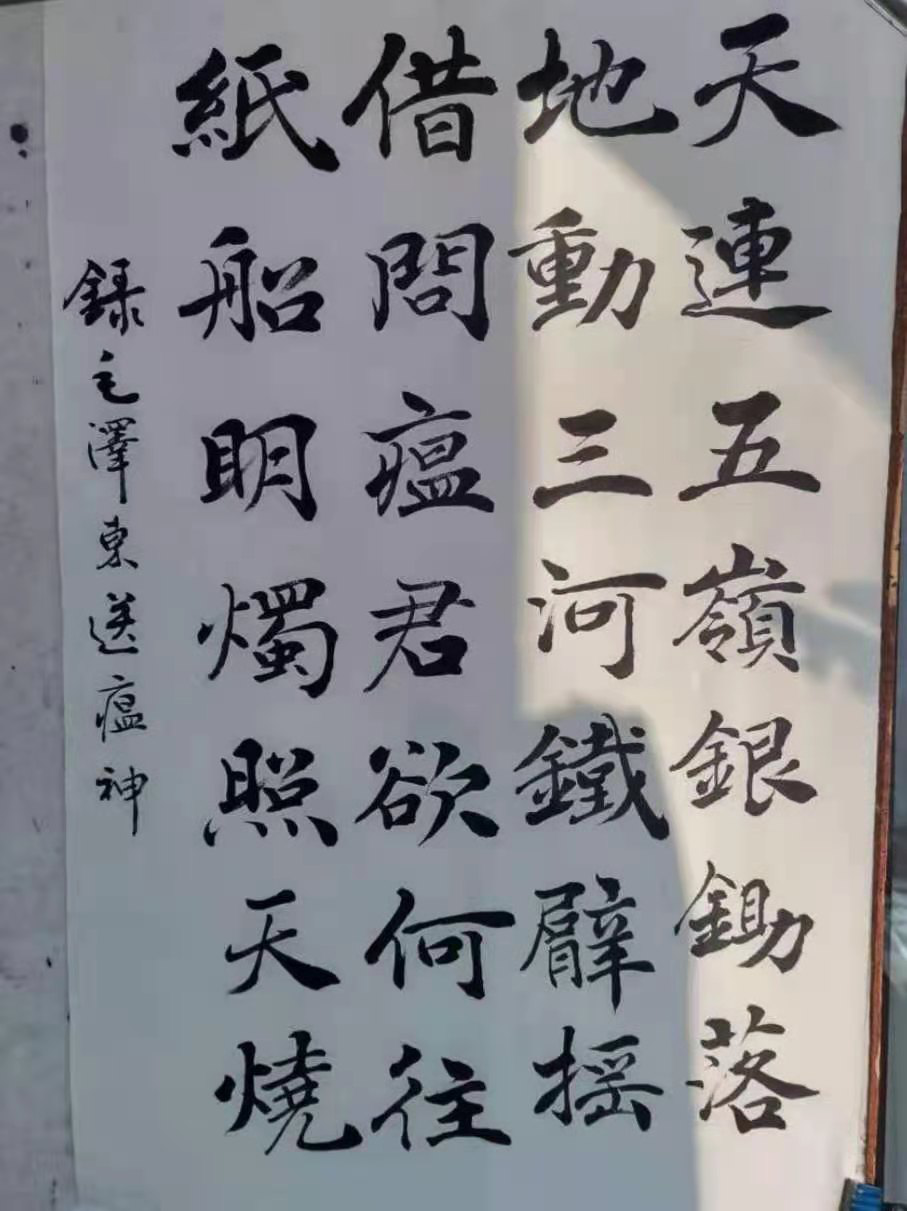 天連五嶺銀鋤落
地動三河鐵臂摇
借問瘟君欲何往
紙船明燭照天燒
録毛澤東送瘟神